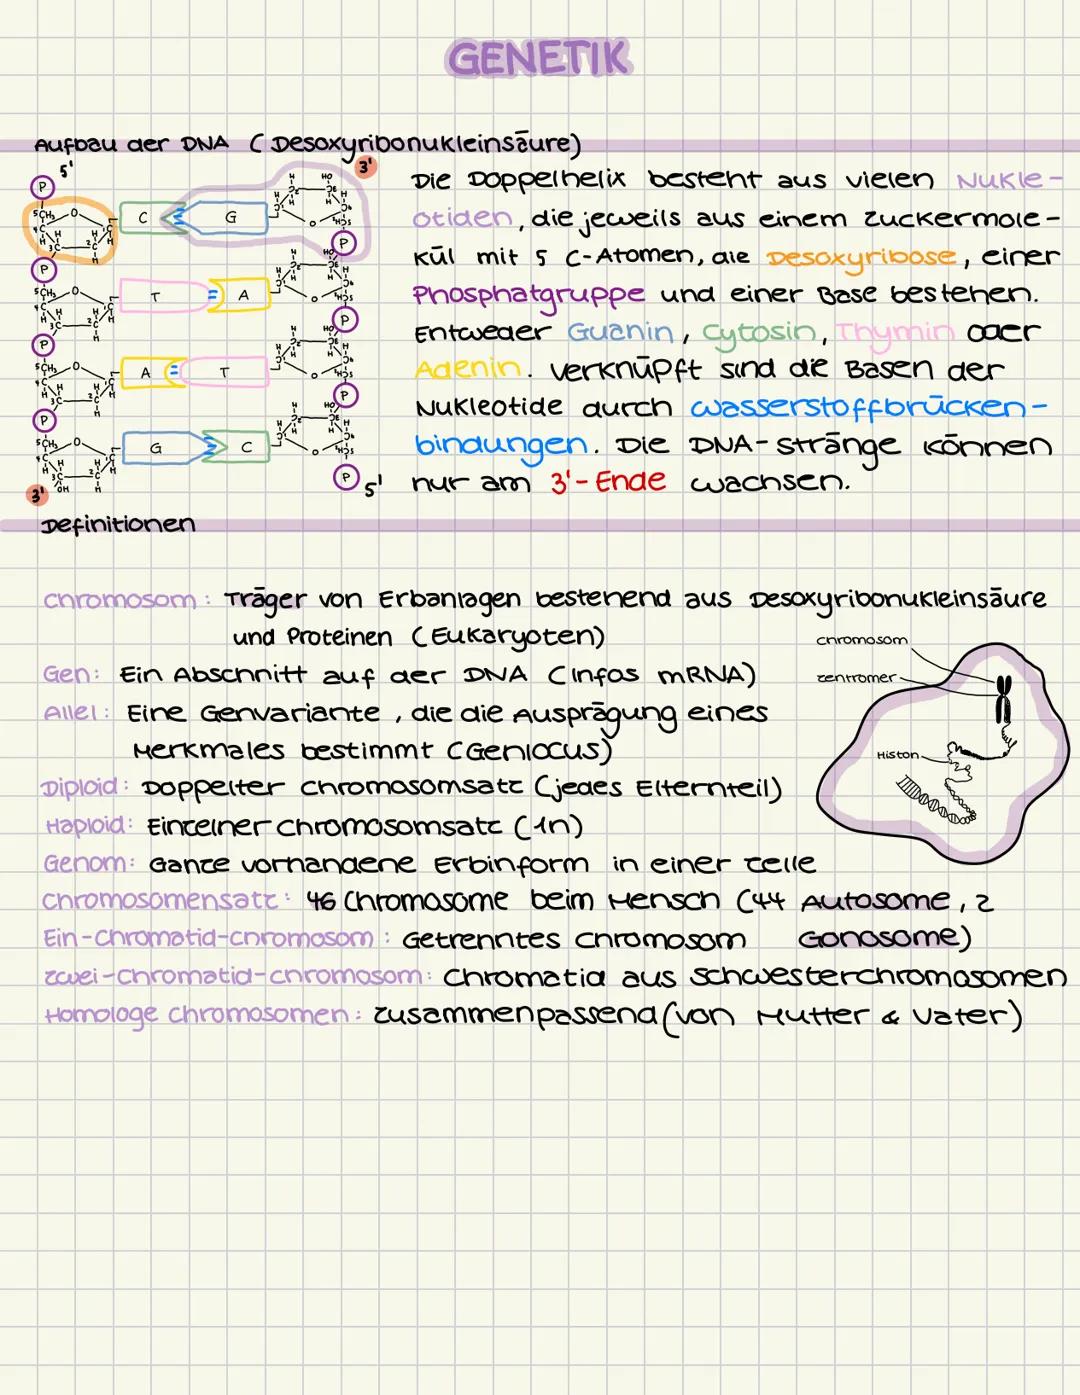 GENETIK
Aufbau der DNA (Desoxyribonukleinsäure)
5' 3'
P
C G
P
T A
P
A T
P
G C
P
3' 5'
Die Doppelhelix besteht aus vielen Nukle-
otiden, die jeweils aus einem Zuckermole-
kül mit 5 C-Atomen, die Desoxyribose, einer
Phosphatgruppe und einer Base bestehen.
Entweder Guanin, Cytosin, Thymin oder
Adenin. Verknüpft sind die Basen der
Nukleotide durch Wasserstoffbrücken-
bindungen. Die DNA-Stränge können
nur am 3'-Ende wachsen.
Definitionen
Chromosom: Träger von Erbanlagen bestehend aus Desoxyribonukleinsäure
und Proteinen (Eukaryoten)
Gen: Ein Abschnitt auf der DNA (Infos mRNA)
Allel: Eine Genvariante, die die Ausprägung eines
Merkmales bestimmt (Genlocus)
Diploid: Doppelter Chromosomsatz (jedes Elternteil)
Haploid: Einzelner Chromosomsatz (1n)
Genom: Ganze vorhandene Erbinform in einer Zelle
Chromosomensatz: 46 Chromosome beim Mensch (44 Autosome, 2
Gonosome)
Ein-Chromatid-Chromosom: Getrenntes Chromosom
Zwei-Chromatid-Chromosom: Chromatid aus Schwesterchromosomen
Homologe Chromosomen: Zusammenpassend (von Mutter & Vater)
Chromosom
Zentromer
Histon